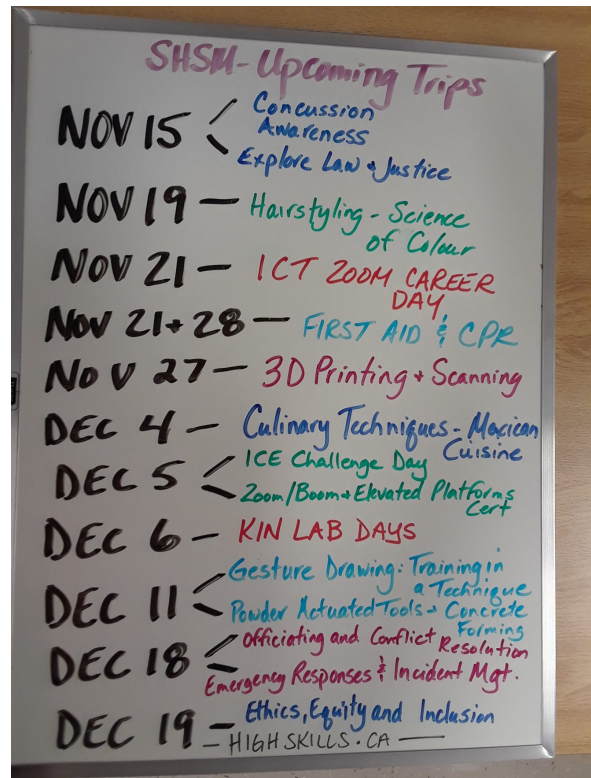 SHSM - Upcoming Trips
NOV 15 < Concussion
Awareness
Explore Law + Justice
NOV 19 — Hairstyling - Science
of Colour
NOV 21 — ICT ZOOM CAREER
DAY
NOV 21 + 28 — FIRST AID & CPR
NOV 27 — 3D Printing + Scanning
DEC 4 — Culinary Techniques - Mexican
Cuisine
DEC 5 < ICE Challenge Day
Zoom/Boom + Elevated Platforms
Cert
DEC 6 — KIN LAB DAYS
DEC 11 < Gesture Drawing: Training in
a Technique
Powder Actuated Tools + Concrete
Forming
DEC 18 < Officiating and Conflict Resolution
Emergency Responses & Incident Mgt.
DEC 19 — Ethics, Equity and Inclusion
— HIGHSKILLS.CA —